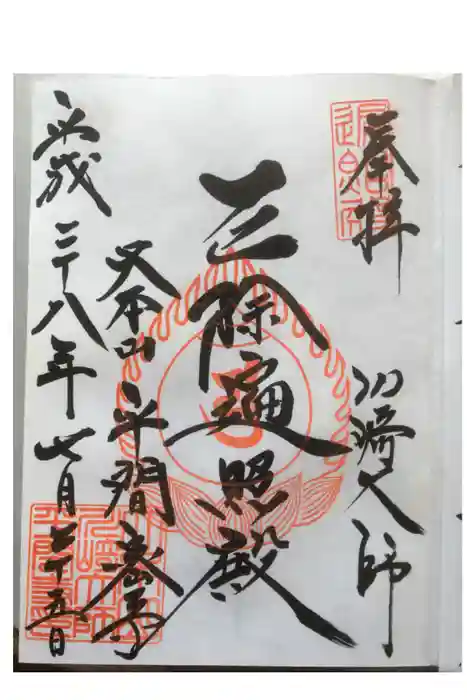 奉拝
川崎大師
厄除遍照殿
大本山 平間寺
平成二十八年七月二十五日